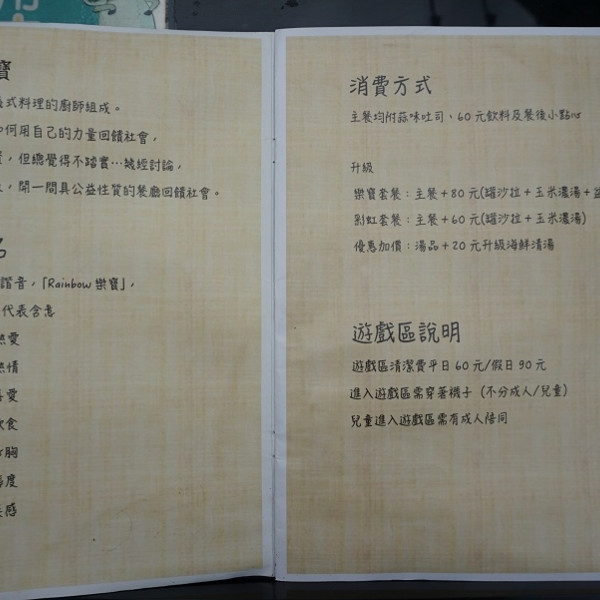 寶
式料理的廚師組成。
何用自己的力量回饋社會，
，但總覺得不踏實…幾經討論，
，開一間具公益性質的餐廳回饋社會。
諧音，「Rainbow 樂寶」，
代表含意
熱愛
熱情
喜愛
飲食
心胸
態度
美感
消費方式
主餐均附蒜味吐司、60 元飲料及餐後小點心
升級
樂寶套餐：主餐＋80 元(罐沙拉＋玉米濃湯＋
彩虹套餐：主餐＋60 元(罐沙拉＋玉米濃湯)
優惠加價：湯品＋20 元升級海鮮清湯
遊戲區說明
遊戲區清潔費平日 60 元/假日 90 元
進入遊戲區需穿著襪子（不分成人/兒童）
兒童進入遊戲區需有成人陪同